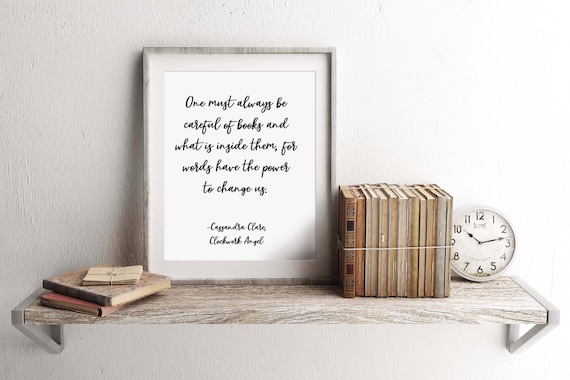 One must always be
careful of books and
what is inside them, for
words have the power
to change us.
-Cassandra Clare,
Clockwork Angel